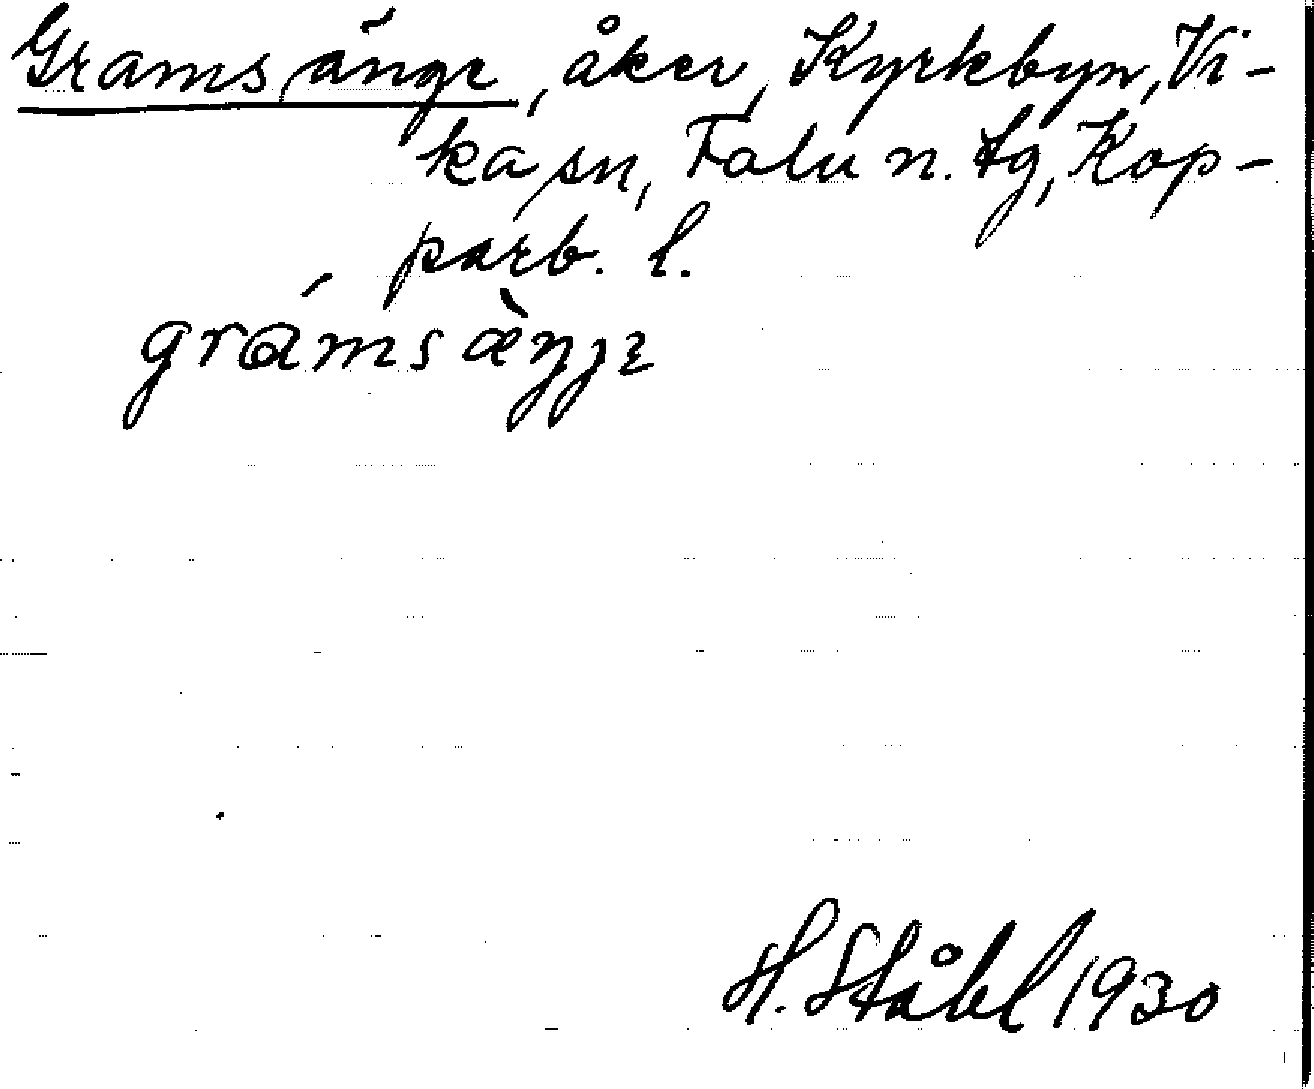 Gramsänge, åker, Kyrkbyn, Vi-
ka sn, Falu n. tg, Kop-
parb. l.
grámsæ̀ŋɟɛ
H. Ståhl 1930